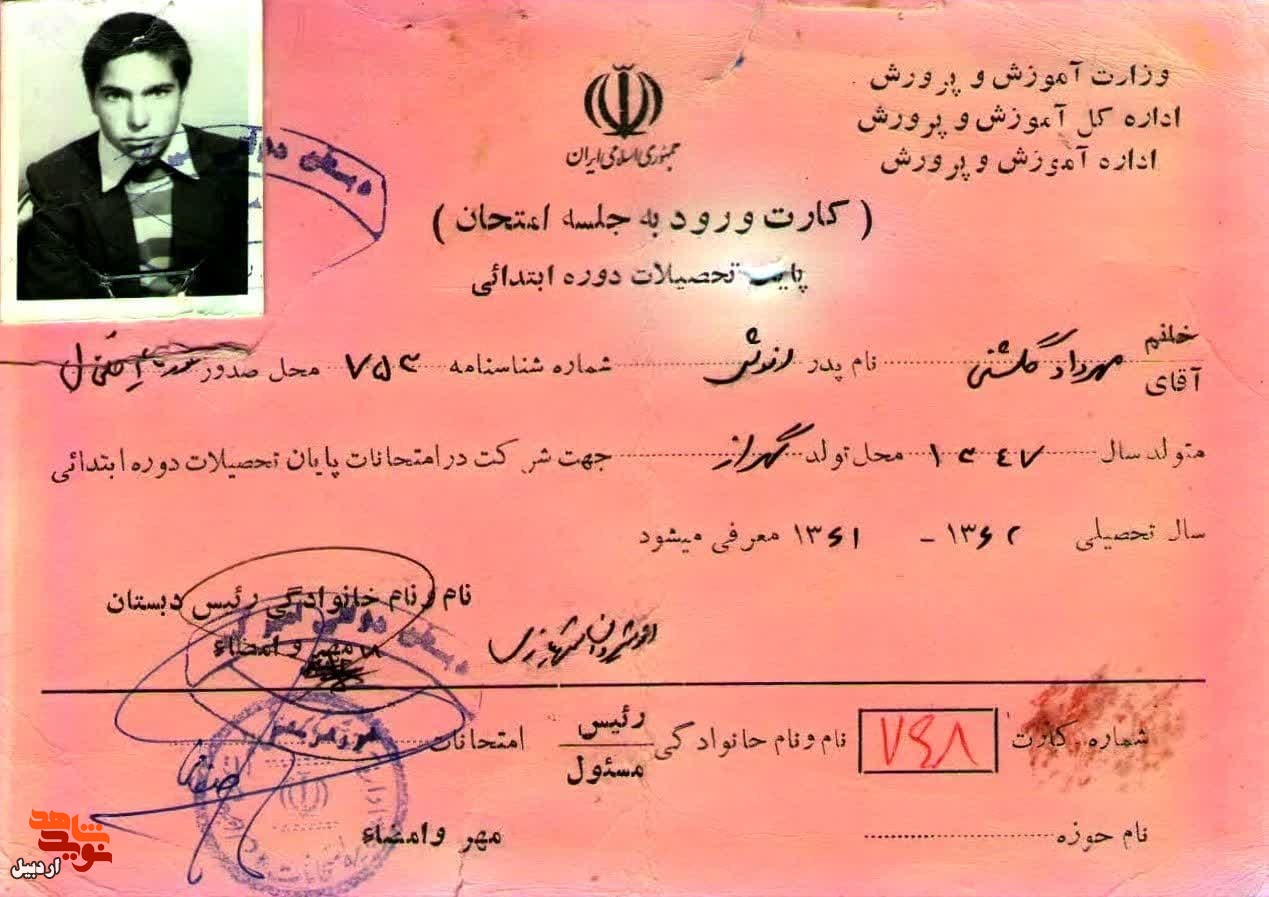 وزارت آموزش و پرورش
اداره کل آموزش و پرورش
اداره آموزش و پرورش
جمهوری اسلامی ایران
( کارت ورود به جلسه امتحان )
پایان تحصیلات دوره ابتدائی
خانم
آقای مهرداد گلشنی نام پدر شماره شناسنامه ۷۵۳ محل صدور
متولد سال ۱۳۴۷ محل تولد جهت شرکت در امتحانات پایان تحصیلات دوره ابتدائی
سال تحصیلی ۱۳۶۲ - ۱۳۶۱ معرفی میشود
نام و نام خانوادگی رئیس دبستان
مهر و امضاء
شماره کارت ۷۴۸ نام و نام خانوادگی رئیس مسئول امتحانات
نام حوزه مهر و امضاء
نوید شاهد
اردبیل